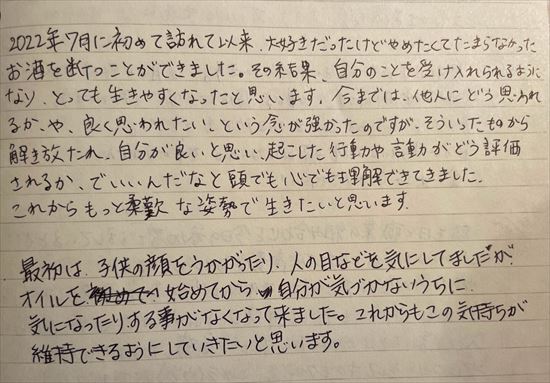 2022年7月に初めて訪れて以来、大好きだったけどやめたくてたまらなかった
お酒を断つことができました。その結果、自分のことを受け入れられるように
なり、とっても生きやすくなったと思います。今までは、他人にどう思われ
るか、や、良く思われたい、という念が強かったのですが、そういったものから
解き放たれ、自分が良いと思い、起こした行動や言動がどう評価
されるか、でいいんだなと頭でも心でも理解できてきました。
これからもっと柔軟な姿勢で生きたいと思います。
最初は、子供の顔をうかがったり、人の目などを気にしてましたが
オイルを始めてから自分が気づかないうちに
気になったりする事がなくなって来ました。これからもこの気持ちが
維持できるようにしていきたいと思います。